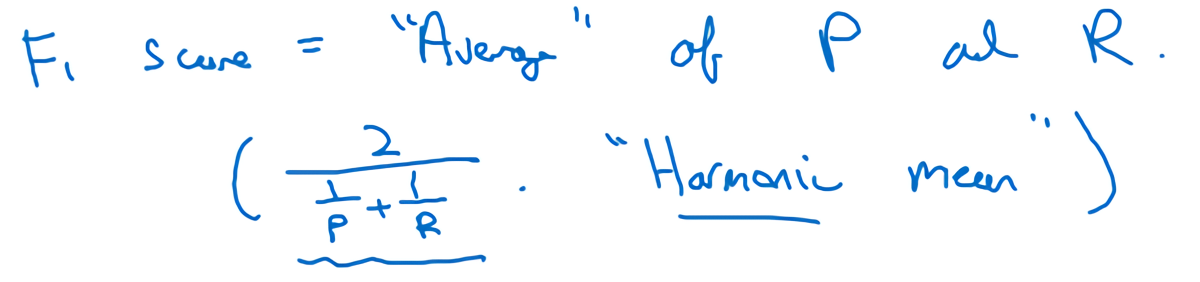 F₁ score = "Average" of P and R.
( 2 / (1/P + 1/R) . "Harmonic mean" )